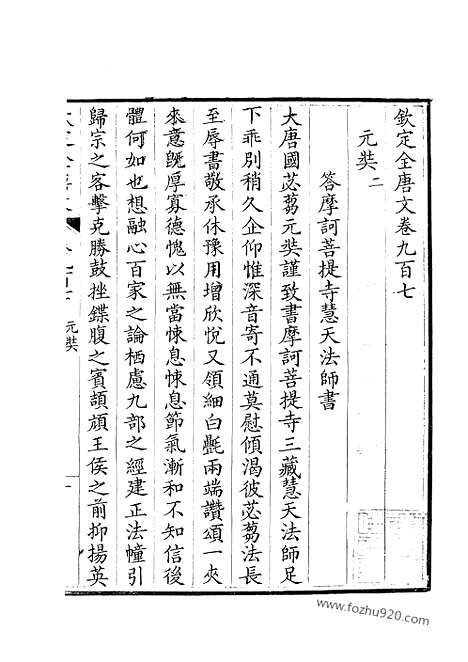 欽定全唐文卷九百七
元奘二
答摩訶菩提寺慧天法師書
大唐國苾蒭元奘謹致書摩訶菩提寺三藏慧天法師足
下乖別稍久企仰惟深音寄不通莫慰傾渴彼苾蒭法長
至辱書敬承休豫用增欣悅又領細白㲲兩端讚頌一夾
來意旣厚寡德愧以無當悚息悚息節氣漸和不知信後
體何如也想融心百家之論栖慮九部之經建正法幢引
歸宗之客擊克勝鼓挫鍱腹之賓頡頏王侯之前抑揚英
元奘
www.fozhu920.com